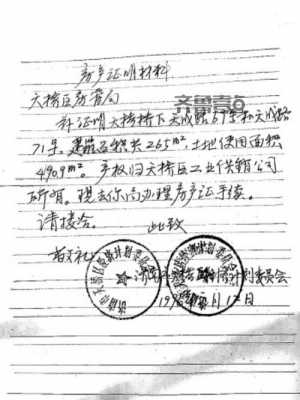 房产证明材料
天桥区房管局
兹证明天桥桥下天成路67号和天成路
71号，建筑面积共265m²，土地使用面积
4909m²。产权归天桥区工业供销公司
所有。现去你局办理房产证手续。
请接洽。
此致
敬礼
齐鲁壹点
计划委员会